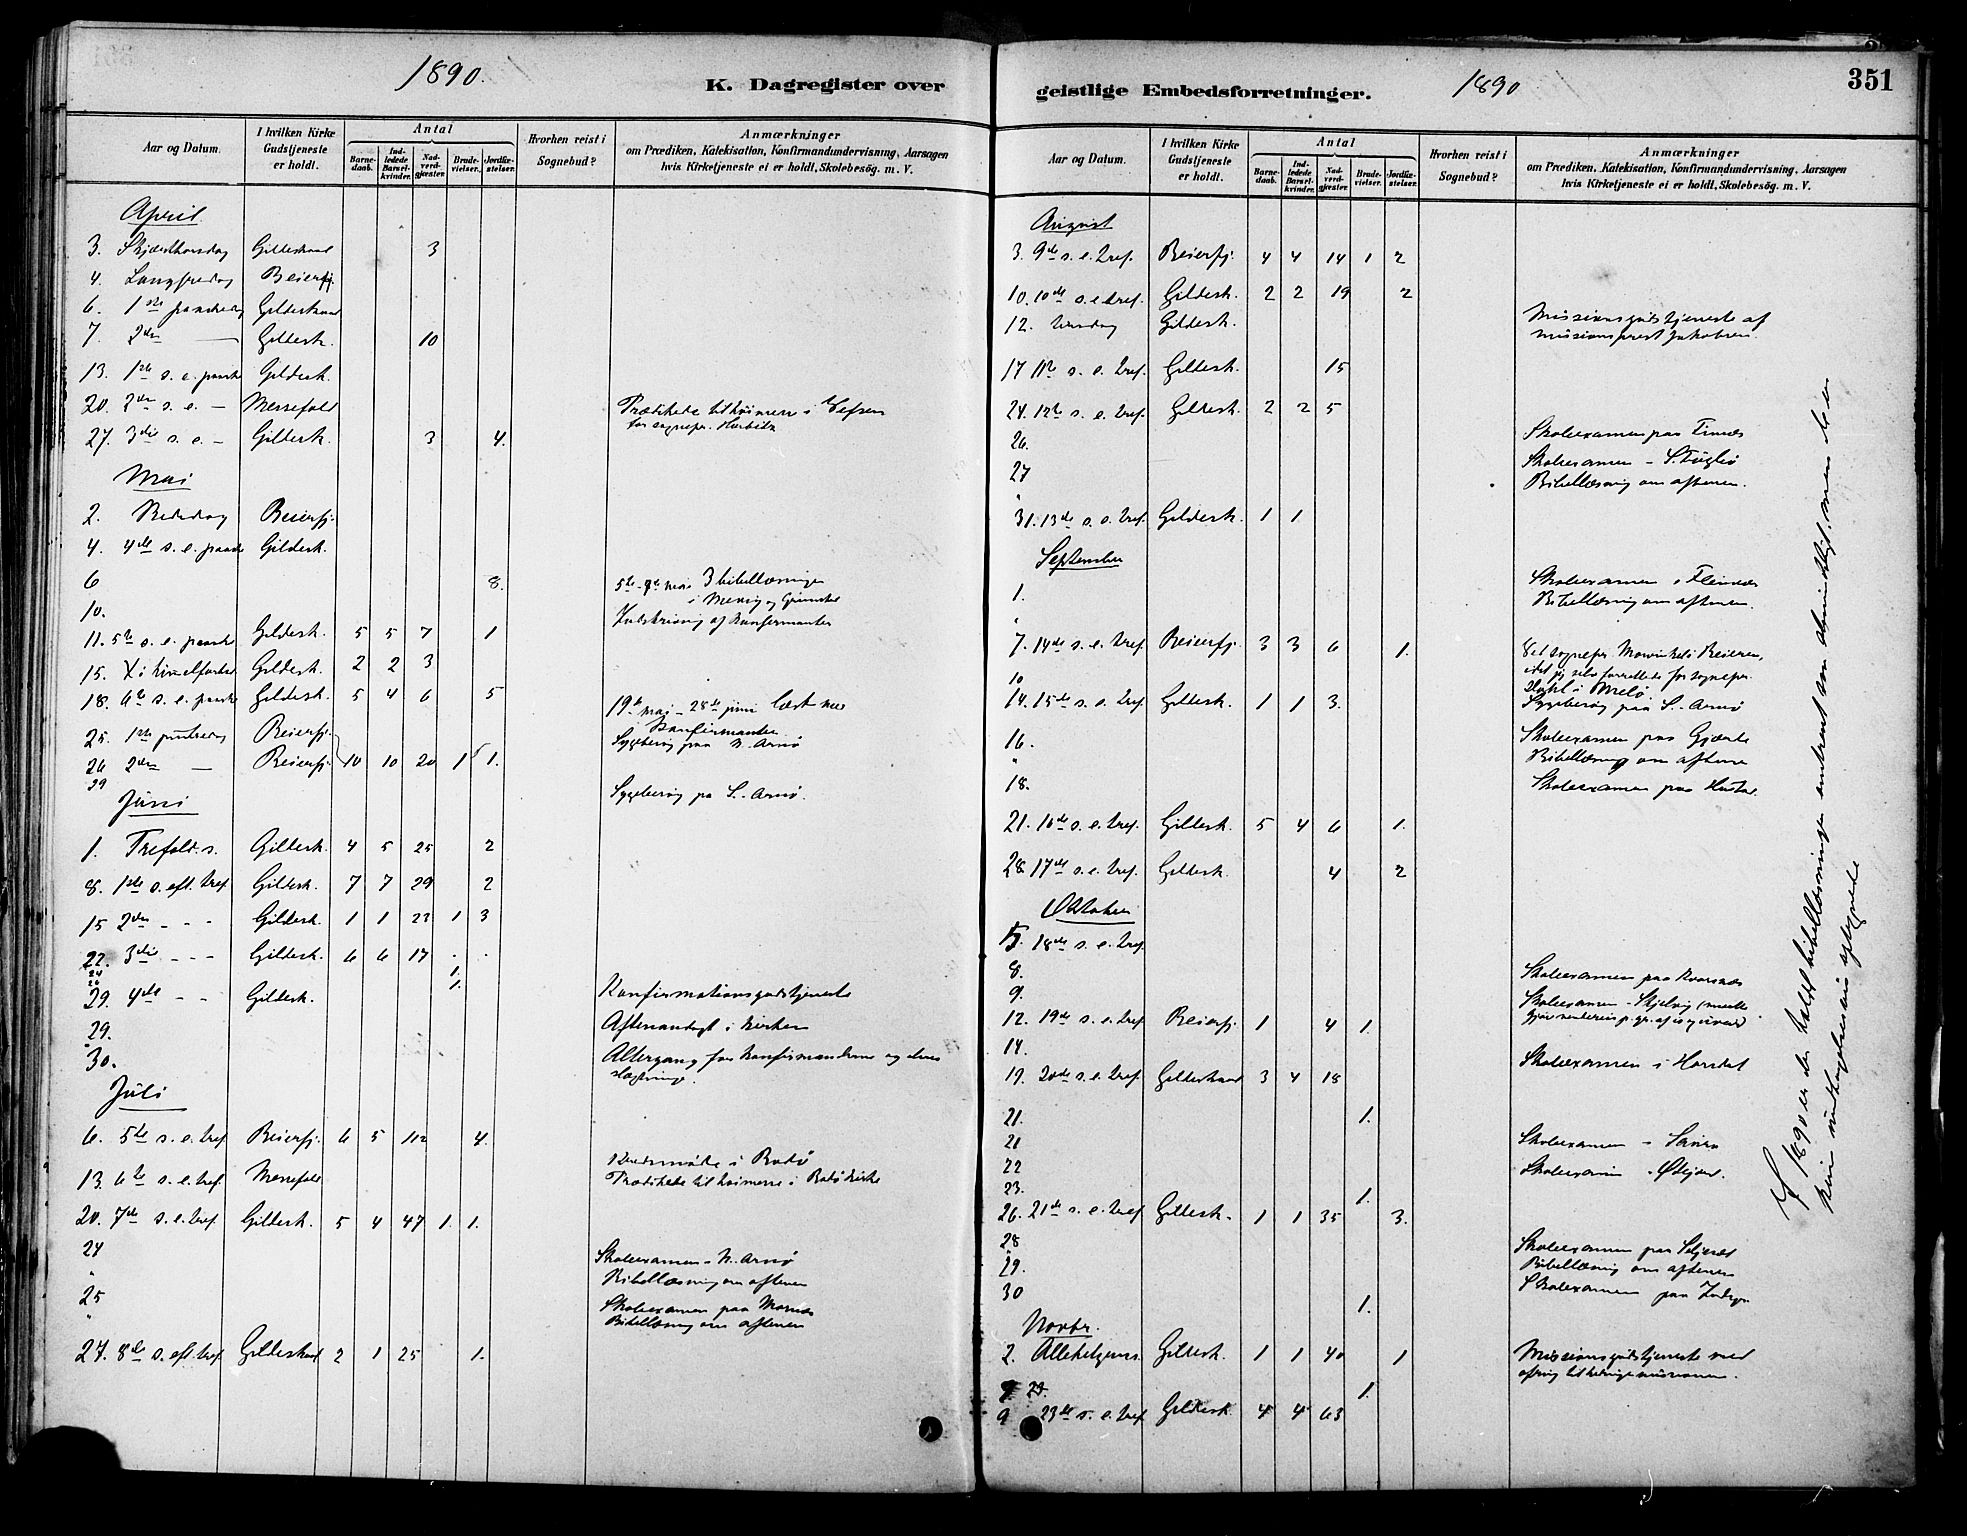 1890.
K. Dagregister over
Aar og Datum.
I hvilken Kirke Gudstjeneste er holdt.
Antal
Barnedaab.
Indledede Barselkvinder.
Nadverdgjester.
Brudevielser.
Jordfæstelser.
Hvorhen reist i Sognebud?
Anmærkninger
om Prædiken, Katekisation, Konfirmandundervisning, Aarsagen
hvis Kirketjeneste ei er holdt, Skolebesøg. m. V.
April
3. Skjærthorsdag Gildeskaal 3
4. Langfredag Beierfj.
6. 1ste paaskedag Gildeskaal
7. 2den — Gildesk. 10
13. 1ste s. e. paaske Gildesk.
20. 2den s. e. — Messefald Prædikede til høimesse i Vefsen
for sognepr.
27. 3die s. e. - Gildesk. 3 4.
Mai
2. Bededag Beierfj.
4. 4de s. e. paaske Gildesk.
6 8. 5te - 7de mai 3 bibellæsninger
i og
10. Indskrivning af konfirmanter
11. 5te s. e. paaske Gildesk. 5 5 7 1
15. Kr. himmelfartsd. Gildesk. 2 2 3
18. 6te s. e. paaske Gildesk. 5 4 6 5
19de mai - 28de juni læst med
konfirmanter.
25. 1ste pintsedag Beierfj. Sygebesøg paa N. Arnø
26 2den — Beierfj. 10 10 20 1 1.
29 Sygebesøg pa S. Arnø.
Juni
1. Trefold. s. Gildesk. 4 5 25 2
8. 1ste s. eft. tref. Gildesk. 7 7 29 2
15 2den - - - Gildesk. 1 1 23 1 3
22. 3die - - - Gildesk. 6 6 17 . .
24 1.
26 1.
29. 4de - - Gildesk. Konfirmationsgudstjeneste
29. Aftenandagt i kirken
30. Altergang for konfirmanderne og deres
slægtninge.
Juli
6. 5te s. e. tref Beierfj. 6 5 112 4.
møde i Bodø
13. 6te s. e. tref. Messefald Prædikede til høimesse i Bodø kirke
20. 7de s. e. tref Gildesk. 5 4 47 1. 1.
24 Skoleexamen - N. Arnø
" Bibellæsning om aftenen
25 Skoleexamen paa Mornæs
" Bibellæsning om aftenen
27. 8de s. eft. tref. Gildeskaal 2 1 25 1.
geistlige Embedsforretninger.
1890
351
Aar og Datum.
I hvilken Kirke Gudstjeneste er holdt.
Antal
Barnedaab.
Indledede Barselkvinder.
Nadverdgjester.
Brudevielser.
Jordfæstelser.
Hvorhen reist i Sognebud?
Anmærkninger
om Prædiken, Katekisation, Konfirmandundervisning, Aarsagen
hvis Kirketjeneste ei er holdt, Skolebesøg. m. V.
August
3. 9de s. e. tref. Beierfj. 4 4 14 1 2
10. 10de s. e. tref. Gildesk. 2 2 19 2
12. tirsdag Gildesk. Missionsgudstjeneste af
missionsprest Jakobsen.
17 11te s. e. tref. Gildesk. 15
24. 12te s. e. tref. Gildesk. 2 2 5
26. Skoleexamen paa Finnæs
27 Skoleexamen - S. Fuglø
" Bibellæsning om aftenen.
31. 13de s. e. tref. Gildesk. 1 1
September
1. Skoleexamen i Fleinnæs
" Bibellæsning om aftenen.
7. 14de s. e. tref Beierfj. 3 3 6 1. Ved sognepr. i Beieren,
idet jeg selv forrettede for sognepr.
i Melø.
10 Sygebesøg paa S. Arnø
14. 15de s. e. tref. Gildesk. 1 1 3.
16. Skoleexamen paa
" Bibellæsning om aftenen
18. Skoleexamen paa
21. 16de s. e. tref. Gildesk. 5 4 6 1.
28. 17de s. e. tref. Gildesk. 4 2
Oktober
5. 18de s. e. tref.
8. Skoleexamen paa
9. Skoleexamen -
12. 19de s. e. tref Beierfj. 1 4 1.
14. Skoleexamen i Horsdal
19. 20de s. e. tref Gildeskaal 3 4 18
21. 1.
21 Skoleexamen -
22 Skoleexamen -
23. 1.
26. 21de s. e. tref Gildesk. 1 1 35 3.
28 Skoleexamen paa
29. Bibellæsning om aftenen
30 Skoleexamen paa
1.
Novbr.
2. Allehelgens. Gildesk. 1 1 40 1 Missionsgudstjeneste med
ofring til hedningemissionen.
1.
9 23de s. e. tref Gildesk. 4 4 63
I 1890 er der holdt bibellæsninger omtrent som almindeligt, men de er
ved ikke optegnede